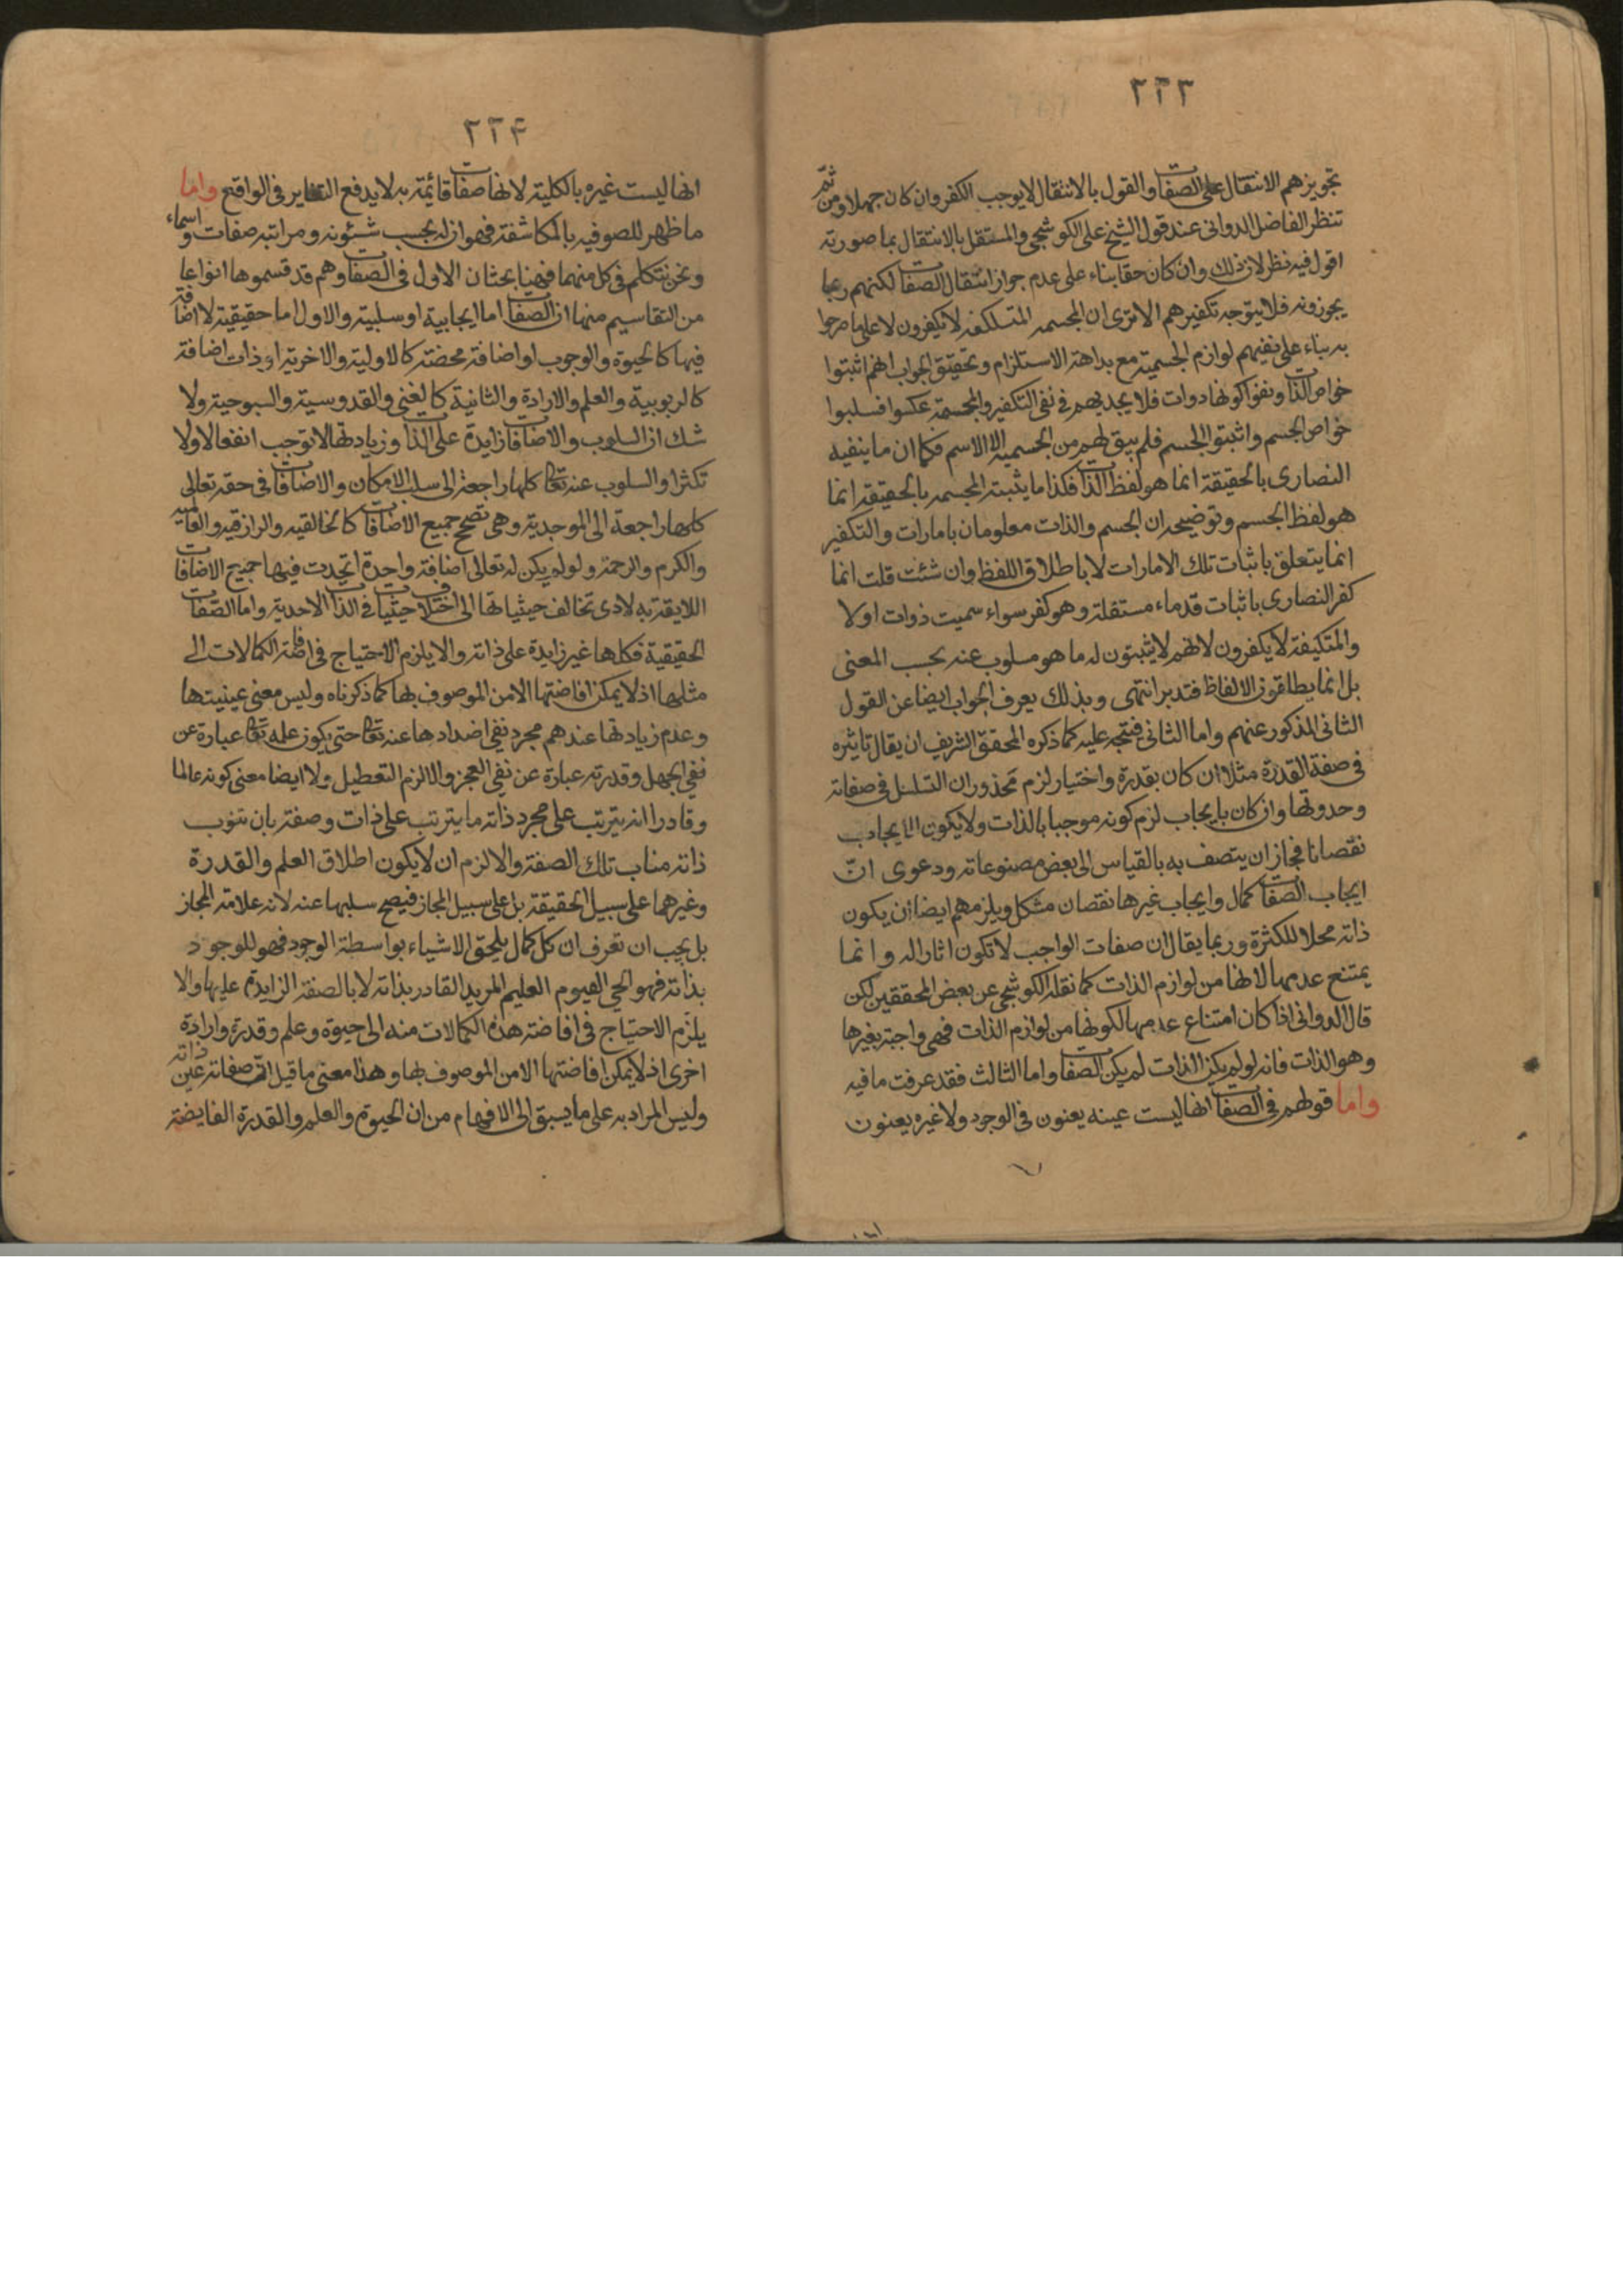 ٢٢٣
تجويزهم الانتقال على الصفات والقول بالانتقال لايوجب الكفر وان كان جهلا ومن ثمّ
تنظر الفاضل الدواني عند قول الشيخ على الكوشجى والمستقل بالانتقال بما صورته
اقول فيه نظر لان ذلك وان كان حقا بناء على عدم جواز انتقال الصفات لكنهم ربما
يجوزونه فلا يتوجه تكفيرهم الا ترى ان المجسمه المتسلكفه لا يكفرون لا على ما صرحوا
به بناء على نفيهم لوازم الجسمية مع بداهة الاستلزام وتحقيق الجواب انهم اثبتوا
خواص الذات ونفوا كونها ذوات فلا يجديهم فى نفى التكفير والمجسمة عكسوا فسلبوا
خواص الجسم واثبتوا الجسم فلم يبق لهم من الجسمية الا الاسم فكما ان ما ينفيه
النصارى بالحقيقة انما هو لفظ الذات فكذا ما يثبته المجسمه بالحقيقة انما
هو لفظ الجسم وتوضيحه ان الجسم والذات معلومان بامارات والتكفير
انما يتعلق باثبات تلك الامارات لا باطلاق اللفظ وان شئت قلت انما
كفر النصارى باثبات قدماء مستقلة وهو كفر سواء سميت ذوات اولا
والمتكيفة لا يكفرون لانهم لا يثبتون له ما هو مسلوب عنه بحسب المعنى
بل انما يطلقون الالفاظ فتدبر انتهى وبذلك يعرف الجواب ايضا عن القول
الثانى المذكور عنهم واما الثانى فتجه عليه كما ذكره المحقق الشريف ان يقال تاثيره
فى صفة القدرة مثلا ان كان بقدرة واختيار لزم محذوران التسلسل فى صفاته
وحدوثها وان كان بايجاب لزم كونه موجبا بالذات ولا يكون الايجاب
نقصانا فجاز ان يتصف به بالقياس الى بعض مصنوعاته ودعوى انّ
ايجاب الصفات كمال وايجاب غيرها نقصان مشكل ويلزمهم ايضا ان يكون
ذاته محلا للكثرة وربما يقال ان صفات الواجب لا تكون اثارا له وانما
يمتنع عدمها لانها من لوازم الذات كما نقله الكوشجى عن بعض المحققين لكن
قال الدوانى اذا كان امتناع عدمها لكونها من لوازم الذات فهى واجبة بغيرها
وهو الذات فانه لو لم يكن الذات لم يكن الصفات واما الثالث فقد عرفت ما فيه
واما قولهم فى الصفات انها ليست عينه يعنون فى الوجود ولا غيره يعنون
٢٢۴
انها ليست غيره بالكلية لانها صفات قائمة به لا يدفع التغاير فى الواقع واما
ما ظهر للصوفيه بالمكاشفة فهو ان له بحسب شئونه ومراتبه صفات واسماء
ونحن نتكلم فى كل منهما فهنا بحثان الاول فى الصفات وهم قد قسموها انواعا
من التقاسيم منها ان الصفات اما ايجابية او سلبية والاول اما حقيقية لا اضافة
فيها كالحيوة والوجوب او اضافة محضة كالاولية والاخرية او ذات اضافة
كالربوبية والعلم والارادة والثانية كالغنى والقدوسية والسبوحية ولا
شك ان السلوب والاضافات زايدة على الذات وزيادتها لا توجب انفعالا ولا
تكثرا والسلوب عنه تعالى كلها راجعة الى سلب الامكان والاضافات فى حقه تعالى
كلها راجعة الى الموجدية وهى تصحح جميع الاضافات كالخالقيه والرازقيه والعالميه
والكرم والرحمة ولو لم يكن له تعالى اضافة واحدة اتحدت فيها جميع الاضافات
اللايقة به لادى تخالف حيثياتها الى اختلاف حيثيات فى الذات الاحدية واما الصفات
الحقيقية فكلها غير زايدة على ذاته والا يلزم الاحتياج فى افاضة الكمالات الى
مثلها اذ لا يمكن افاضتها الا من الموصوف بها كما ذكرناه وليس معنى عينيتها
وعدم زيادتها عندهم مجرد نفى اضدادها عنه تعالى حتى يكون علمه تعالى عبارة عن
نفى الجهل وقدرته عبارة عن نفى العجز والا لزم التعطيل ولا ايضا معنى كونه عالما
وقادرا انه يترتب على مجرد ذاته ما يترتب على ذات وصفة بان تنوب
ذاته مناب تلك الصفة والا لزم ان لا يكون اطلاق العلم والقدرة
وغيرهما على سبيل الحقيقة بل على سبيل المجاز فيصح سلبها عنه لانه علامة المجاز
بل يجب ان تعرف ان كل كمال يلحق الاشياء بواسطة الوجود فهو للوجود
بذاته فهو الحي القيوم العليم المريد القادر بذاته لا بالصفة الزايدة عليها والا
يلزم الاحتياج فى افاضة هذه الكمالات منه الى حيوة وعلم وقدرة وارادة
اخرى اذ لا يمكن افاضتها الا من الموصوف بها وهذا معنى ما قيل ان صفاته عين ذاته
وليس المراد به على ما يسبق الى الافهام من ان الحيوة والعلم والقدرة الفايضة